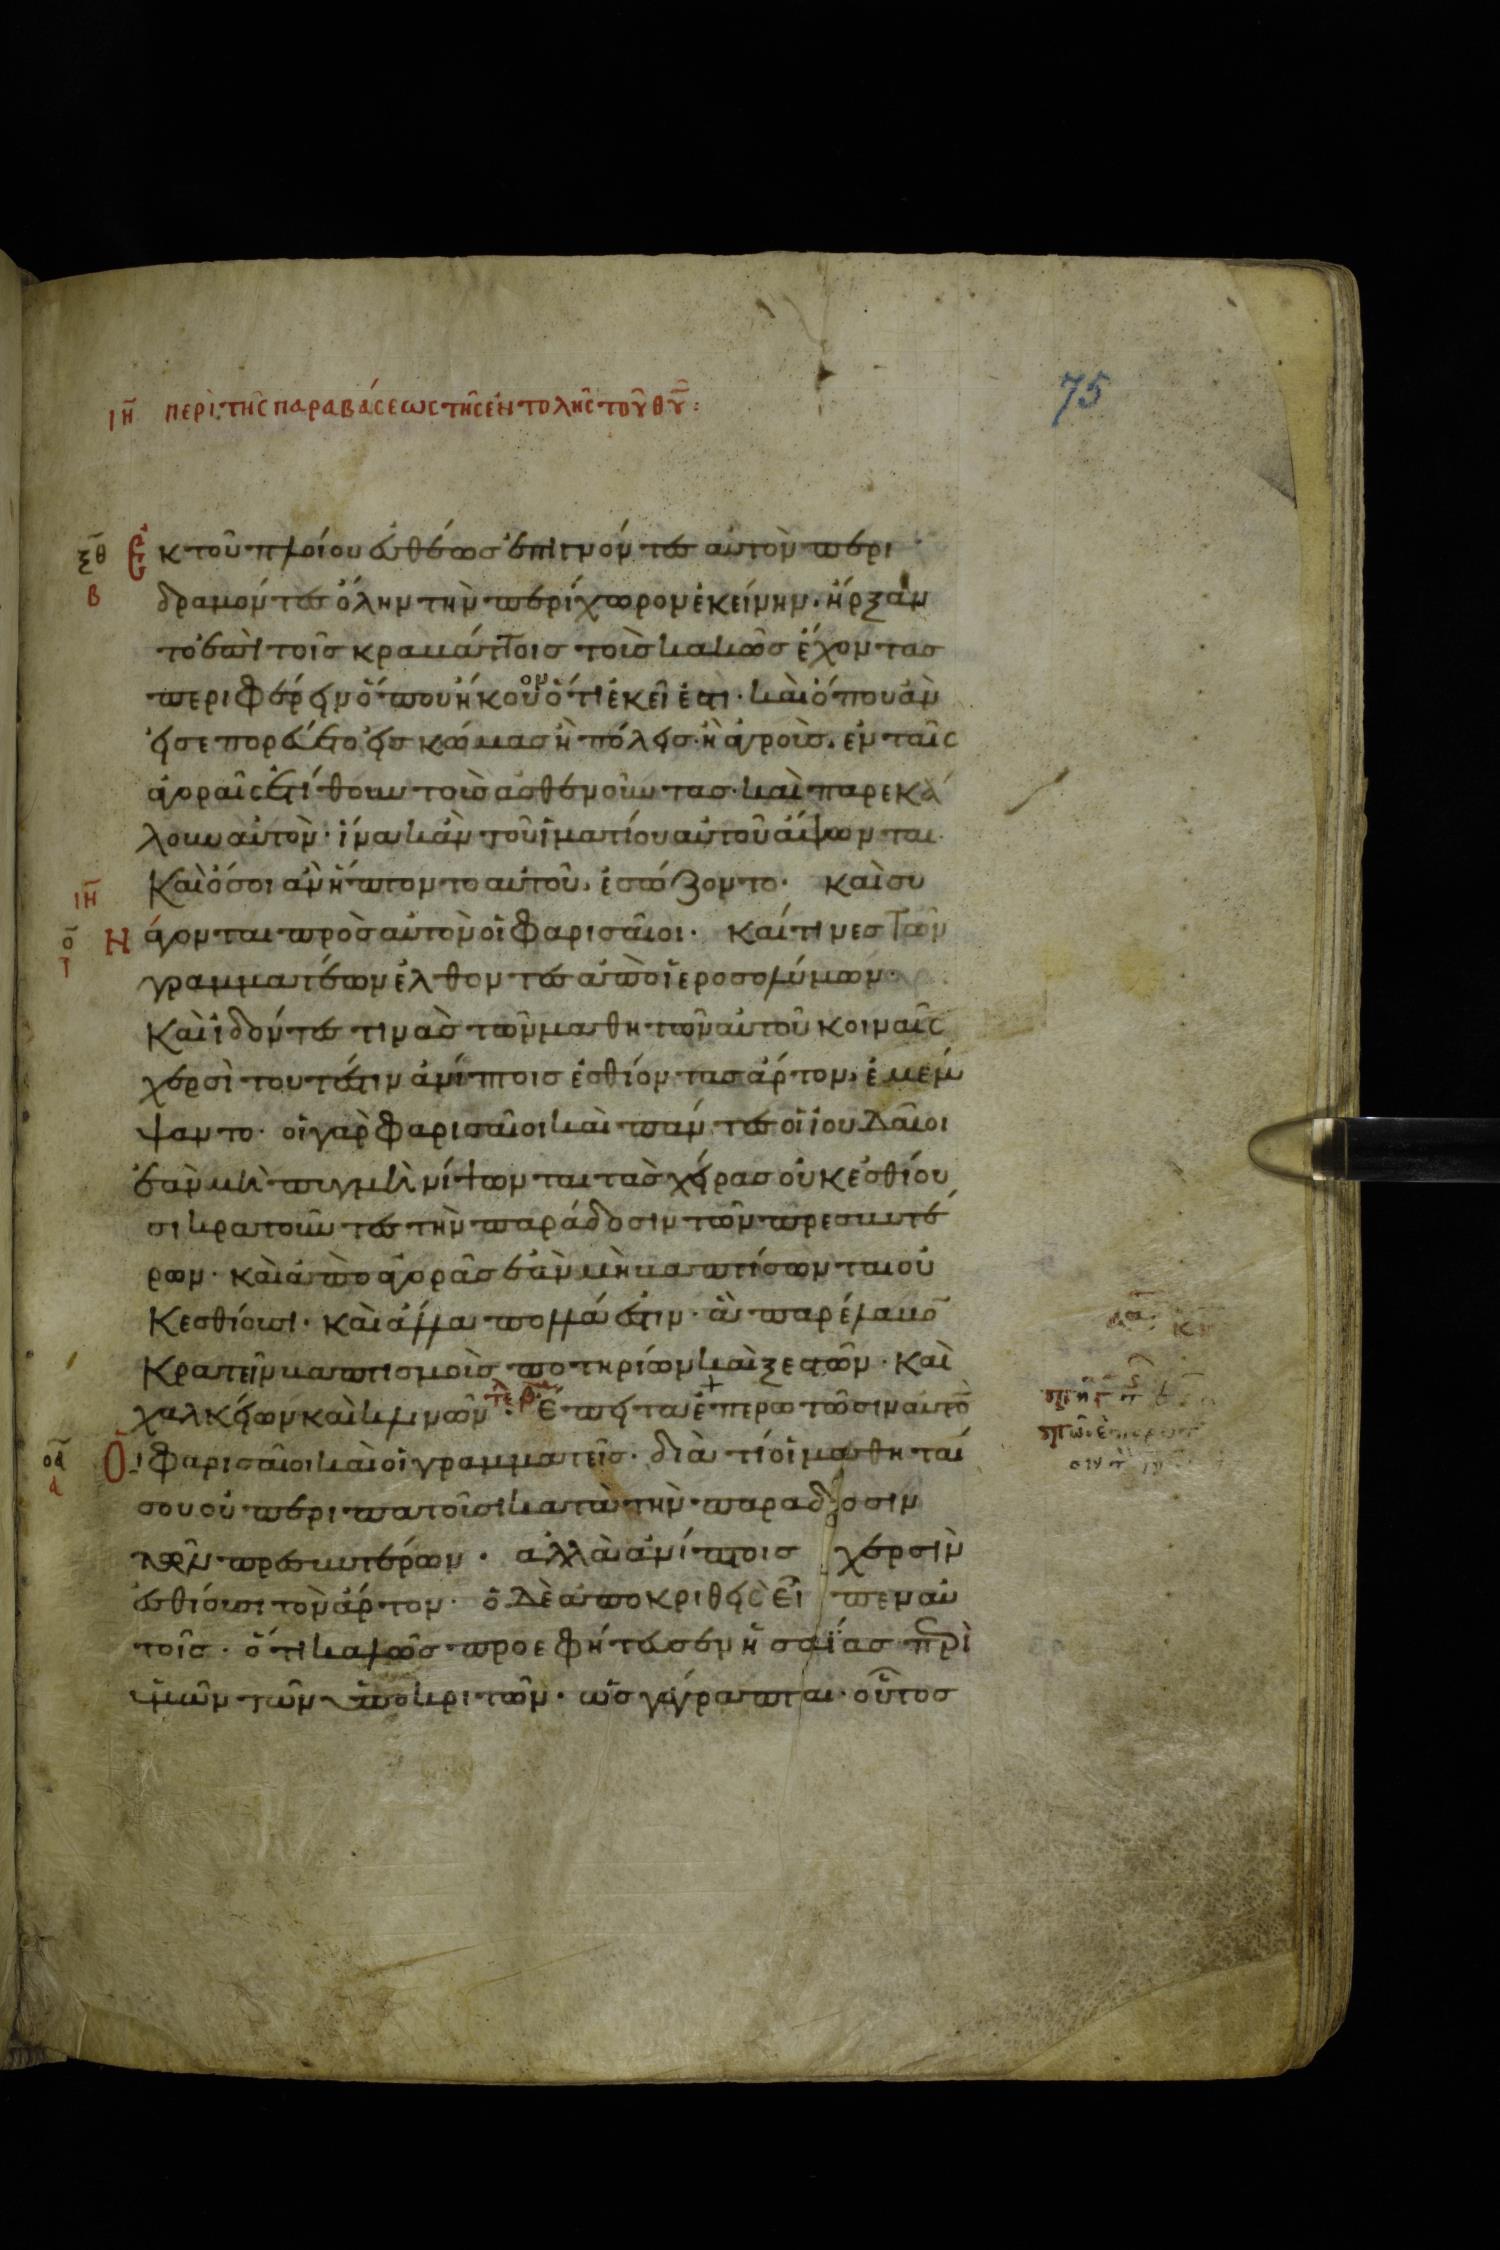 ιη περὶ τῆς παραβάσεως τῆς ἐντολῆς τοῦ θῦ:
75
ξθ Ἐκ τοῦ πλοίου εὐθέως ἐπιγνόντες αὐτὸν περι
β δραμόντες ὅλην τὴν περίχωρον ἐκείνην. ἤρξαν
το ἐπὶ τοῖς κραμάττοις τοὺς κακῶς ἔχοντας
περιφέρειν ὅπου ἤκουον ὅτι ἐκεῖ ἐστι. καὶ ὅπου ἀν
εἰσεπορεύετο εἰς κώμας ἢ πόλεις. ἢ ἀγροὺς. ἐν ταῖς
ἀγοραῖς ἐτίθουν τοὺς ἀσθενοῦντας. καὶ παρεκά
λουν αὐτὸν. ἵνα κἀν τοῦ ἱματίου αὐτοῦ ἅψωνται.
ιη Καὶ ὅσοι ἀν ἥπτοντο αὐτοῦ, ἐσώζοντο. καὶ συ
ο Η άγονται πρὸς αὐτὸν οἱ φαρισαῖοι. καί τινες τῶν
ι γραμματέων ἐλθόντες ἀπὸ ἱεροσολύμων.
Καὶ ἰδόντες τινὰς τῶν μαθητῶν αὐτοῦ κοιναῖς
χερσὶ τουτέστιν ἀνίπτοις ἐσθίοντας ἄρτον, ἐμέμ
ψαντο. οἱ γὰρ φαρισαῖοι καὶ πάντες οἱ ἰουδαῖοι
ἐὰν μὴ πυγμὴ νίψωνται τὰς χεῖρας οὐκ ἐσθίου
σι κρατοῦντες τὴν παράδοσιν τῶν πρεσβυτέ
ρων. καὶ ἀπὸ ἀγορᾶς ἐὰν μὴ βαπτίσωνται οὐ
κ εσθίουσι. καὶ ἄλλα πολλά ἐστιν. ἃ παρέλαβο̄
Κρατεῖν βαπτισμοὺς ποτηρίων καὶ ξεστῶν. καὶ
χαλκείων καὶ κλινῶν. Ἔπειτα ἐπερωτῶσιν αὐτὸ̄
οα Οἱ φαρισαῖοι καὶ οἱ γραμματεῖς. διὰ τί οἱ μαθηταί
σου οὐ περιπατοῦσι κατὰ τὴν παραδοσιν
τῶν πρεσβυτέρων. αλλὰ ἀνίπτοις χερσὶν
ἐσθίουσι τὸν ἄρτον. ὁ δὲ ἀποκριθεὶς εἶπεν αὐ
τοῖς. ὅτι καλῶς προεφήτευσεν ἡσαΐας περὶ
ὑμῶν τῶν ὑποκριτῶν. ὡς γέγραπται. οὗτος